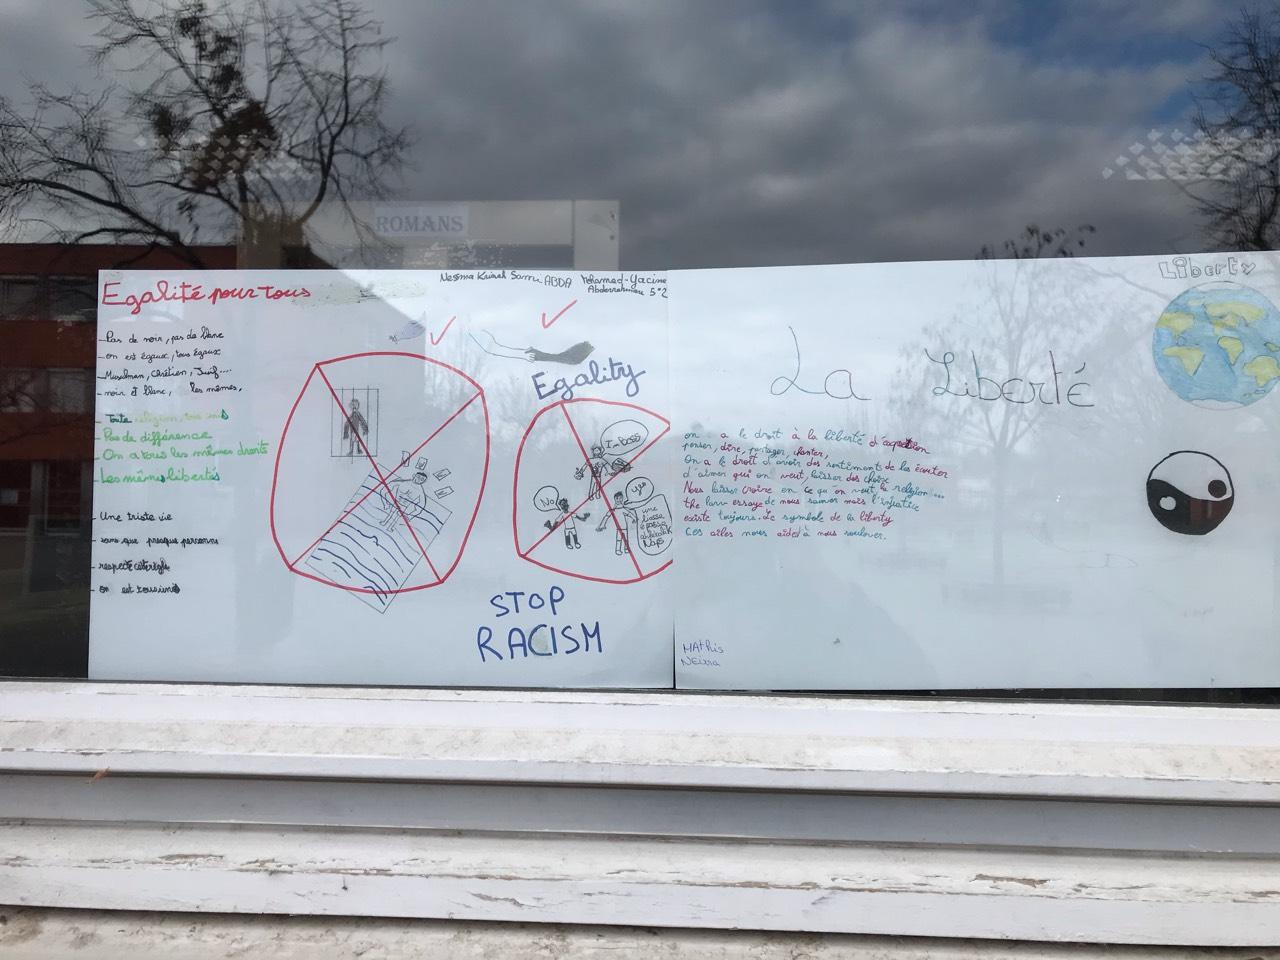 ROMANS
Egalité pour tous
Nesma Sami ABDA Mohamed-Yacine
Abderrahman 5°2
- Pas de noir, pas de blanc
- on est égaux, tous égaux
- Musulman, Chrétien, Juif....
- noir et blanc, les mêmes.
- Toute religion, tous
- Pas de différence
- On a tous les mêmes droits
- Les mêmes libertés
- Une triste vie
- sans que presque personne
- respecte cette règle
- on est tous unis
Egality
I'm boss
No
yes
STOP
RACISM
Liberty
La Liberté
on a le droit à la liberté d'
penser, dire, partager, chanter,
On a le droit d'avoir des sentiments de les écouter
d'aimer qui on veut, laisser des choix
Nous laisser croire en ce qu'on veut la religion...
the law essaye de nous sauver mais l'injustice
existe toujours. Le symbole de la liberty
Ces ailes nous aident à nous soulever.
MAthis
NEissa